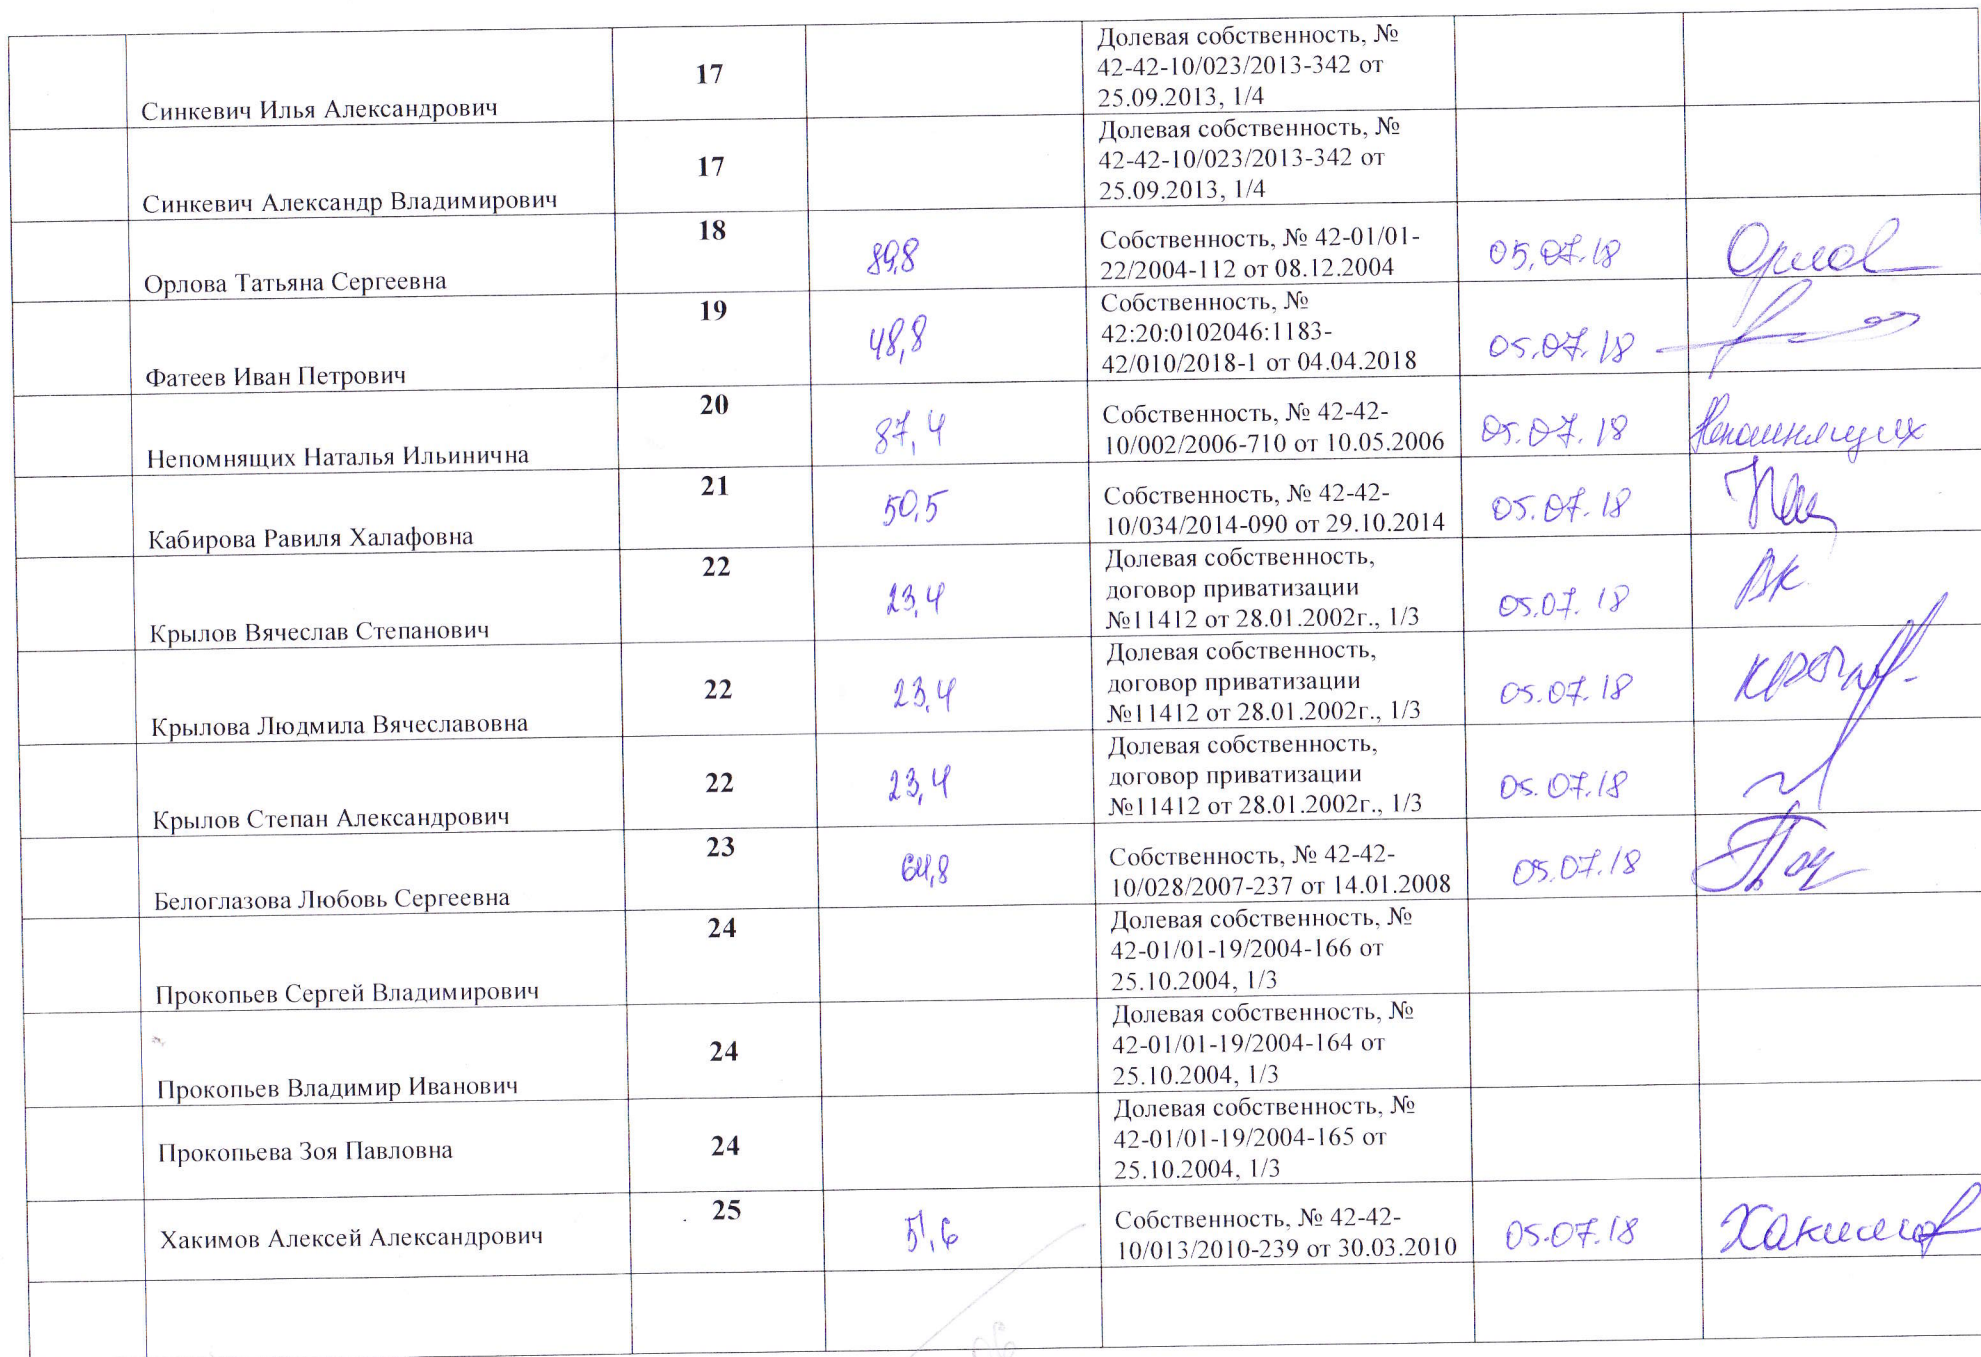 Долевая собственность, №
42-42-10/023/2013-342 от
25.09.2013, 1/4
17
Синкевич Илья Александрович
Долевая собственность, №
42-42-10/023/2013-342 от
25.09.2013, 1/4
17
Синкевич Александр Владимирович
18
Орлова Татьяна Сергеевна
89,8
Собственность, № 42-01/01-
22/2004-112 от 08.12.2004
05.07.18
Орлов
19
Фатеев Иван Петрович
48,8
Собственность, №
42:20:0102046:1183-
42/010/2018-1 от 04.04.2018
05.07.18
20
Непомнящих Наталья Ильинична
87,4
Собственность, № 42-42-
10/002/2006-710 от 10.05.2006
05.07.18
Непомнящих
21
Кабирова Равиля Халафовна
50,5
Собственность, № 42-42-
10/034/2014-090 от 29.10.2014
05.07.18
22
Крылов Вячеслав Степанович
23,4
Долевая собственность,
договор приватизации
№11412 от 28.01.2002г., 1/3
05.07.18
Вк
22
Крылова Людмила Вячеславовна
23,4
Долевая собственность,
договор приватизации
№11412 от 28.01.2002г., 1/3
05.07.18
22
Крылов Степан Александрович
23,4
Долевая собственность,
договор приватизации
№11412 от 28.01.2002г., 1/3
05.07.18
23
Белоглазова Любовь Сергеевна
64,8
Собственность, № 42-42-
10/028/2007-237 от 14.01.2008
05.07.18
24
Прокопьев Сергей Владимирович
Долевая собственность, №
42-01/01-19/2004-166 от
25.10.2004, 1/3
24
Прокопьев Владимир Иванович
Долевая собственность, №
42-01/01-19/2004-164 от
25.10.2004, 1/3
24
Прокопьева Зоя Павловна
Долевая собственность, №
42-01/01-19/2004-165 от
25.10.2004, 1/3
25
Хакимов Алексей Александрович
51,6
Собственность, № 42-42-
10/013/2010-239 от 30.03.2010
05.07.18
Хакимов